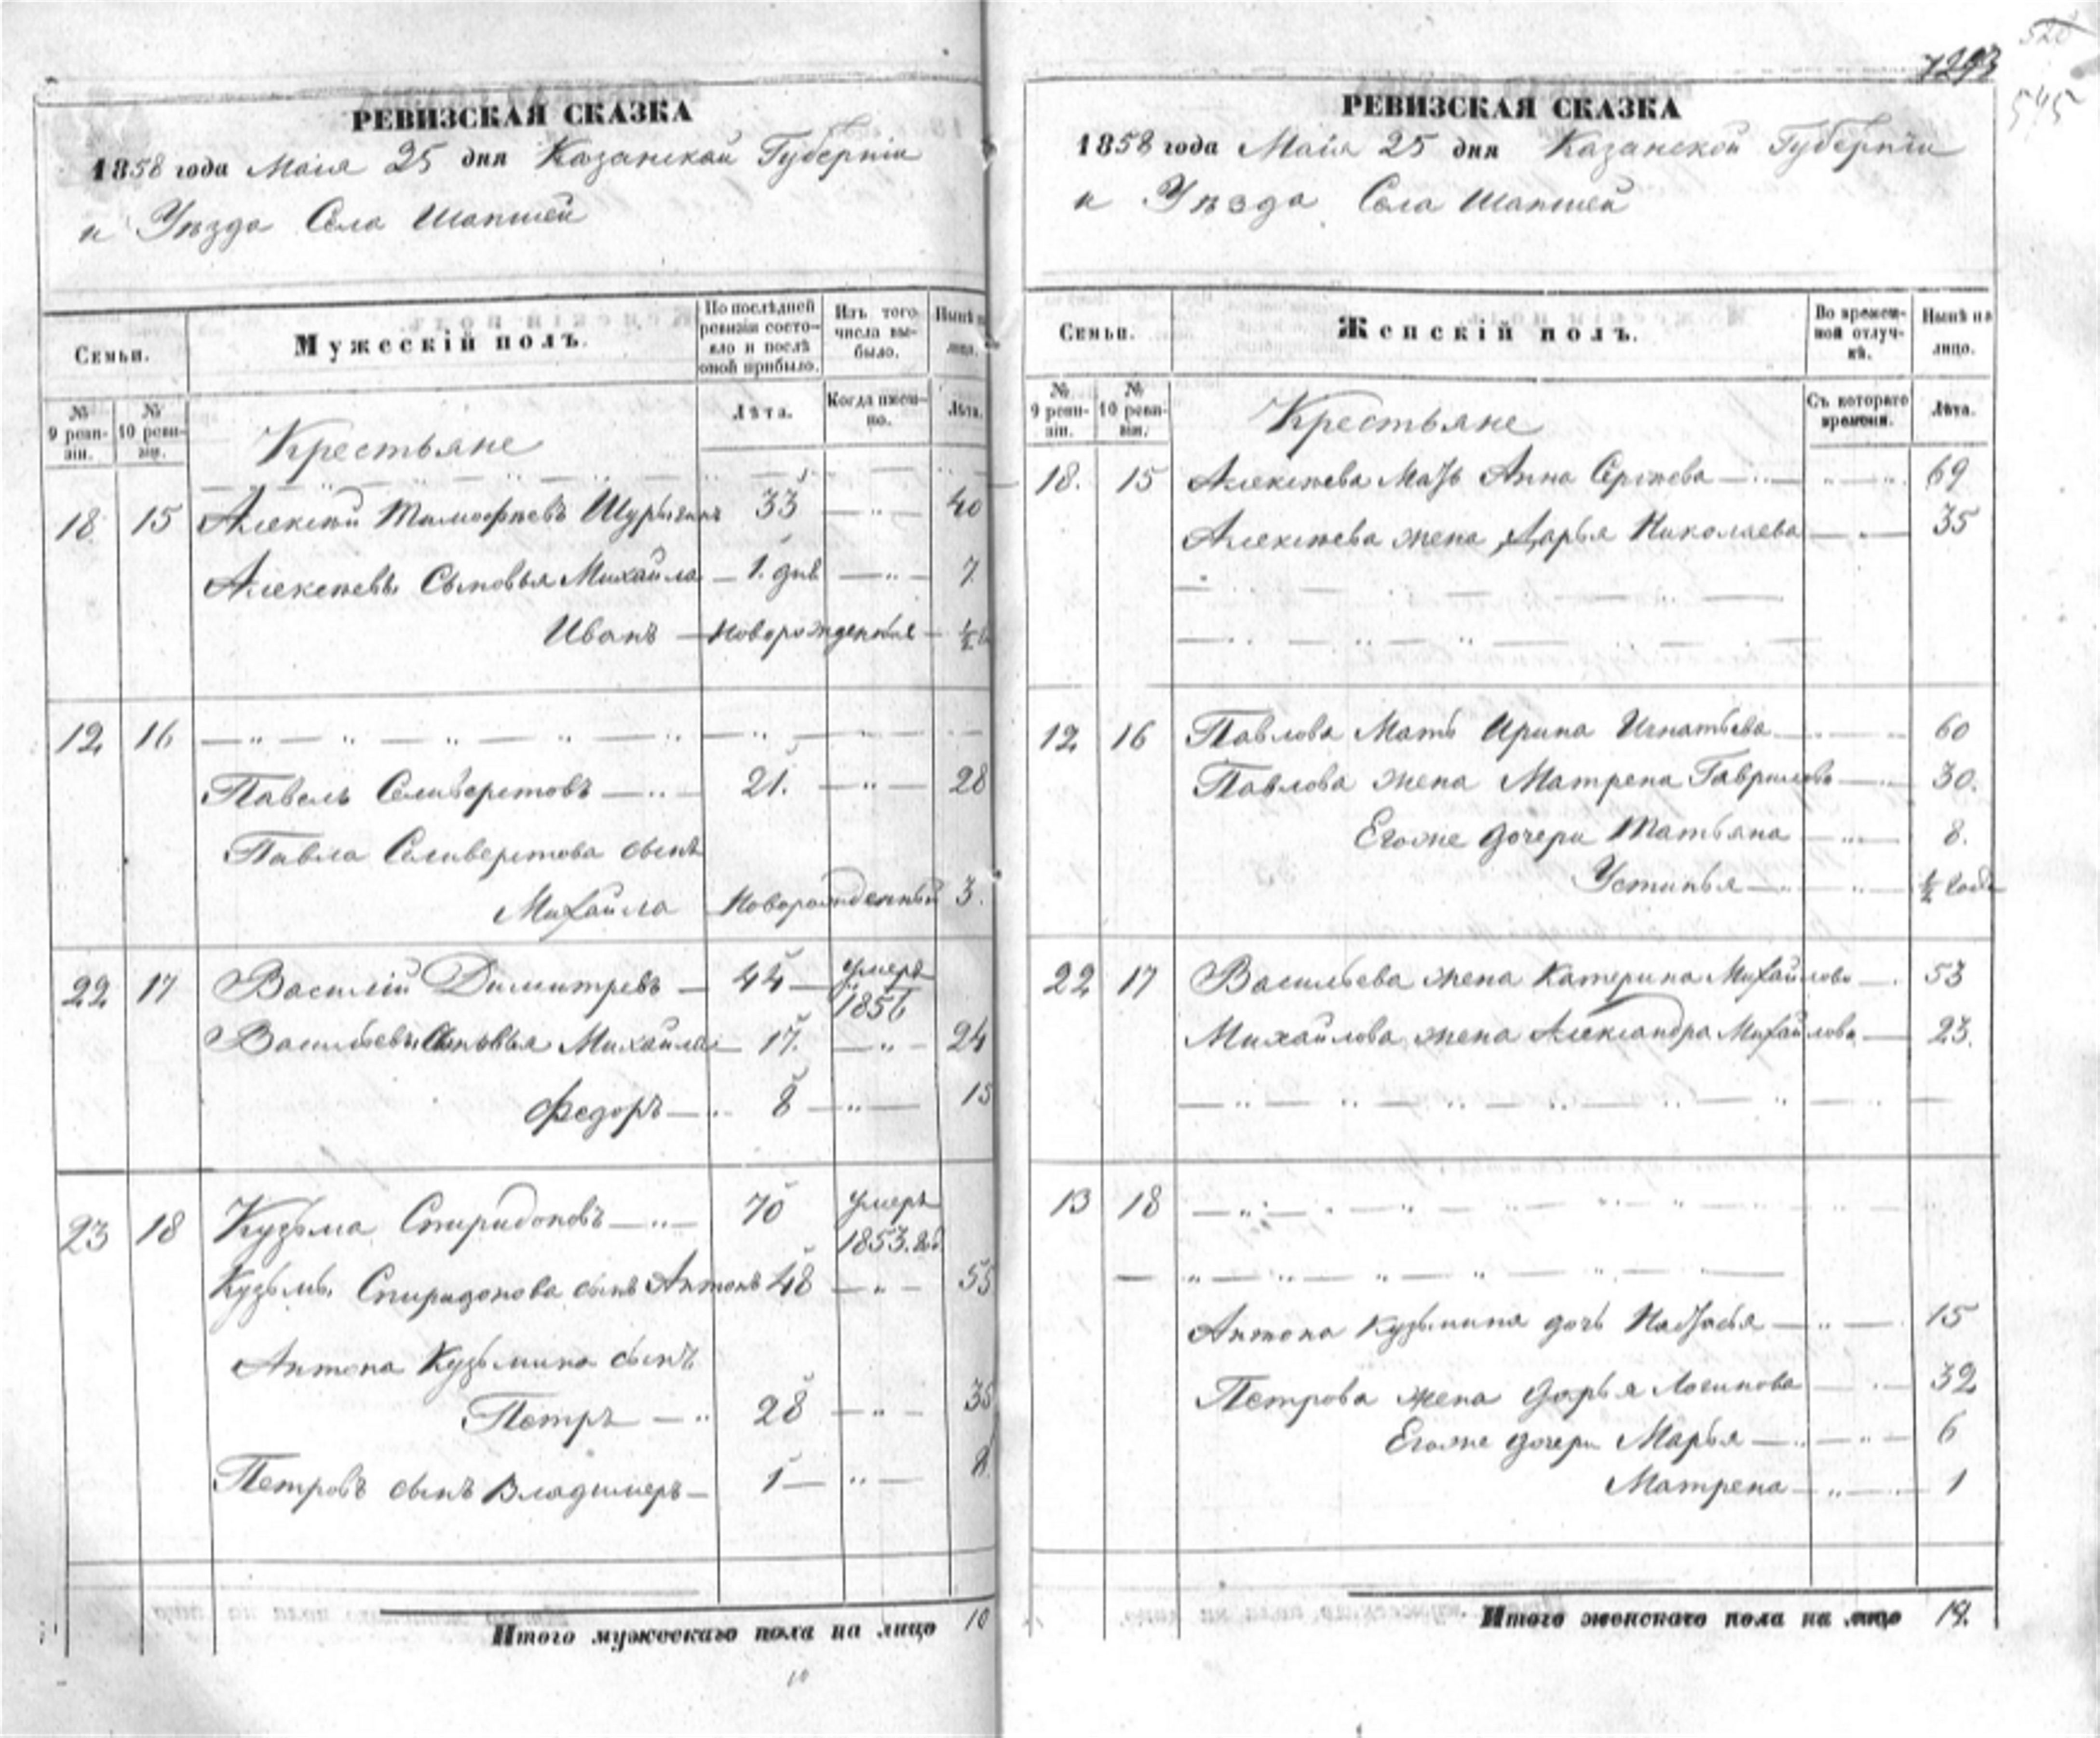 РЕВИЗСКАЯ СКАЗКА
1858 года Маія 25 дня Казанской Губерніи
и Уѣзда Села Шапшей
Семьи.
Мужескій полъ.
По послѣдней ревизіи состояло и послѣ оной прибыло.
Изъ того числа выбыло.
Нынѣ на лицо.
№ 9 ревизіи.
№ 10 ревизіи.
Крестьяне
Лѣта.
Когда именно.
Лѣта.
18 15 Алексѣй Тимофѣевъ Шурыгинъ 33 — " — 40
Алексѣевы Сыновья Михайла — 1. дня — " — 7
Иванъ — Новорожденные — ½
12 16 — " — " — " — " — " — " — " — " —
Павелъ Селиверстовъ — " — 21. — " — 28
Павла Селиверстова сынъ
Михайла Новорожденный 3.
22 17 Василій Димитревъ — 44 — умеръ
1856
Васильевы Сыновья Михайла — 17. — " — 24
Федоръ — " 8 — " — 15
23 18 Кузьма Спиридоновъ — " — 70 умеръ
1853. год.
Кузьмы Спиридонова сынъ Антонъ 48 — " — 55
Антона Кузьмина сынъ
Петръ — " 28 — " — 35
Петровъ сынъ Владимеръ — 1 — " — 8
Итого мужескаго пола на лицо 10
10
1293
545
РЕВИЗСКАЯ СКАЗКА
1858 года Маія 25 дня Казанской Губерніи
и Уѣзда Села Шапшей
Семьи.
Женскій полъ.
Во временной отлучкѣ.
Нынѣ на лицо.
№ 9 ревизіи.
№ 10 ревизіи.
Крестьяне
Съ котораго времени.
Лѣта.
18. 15 Алексѣева Мать Анна Сергѣева — " — " — " 69
Алексѣева жена Дарья Николаева — " — 35
12 16 Павлова Мать Ирина Игнатьева — " — 60
Павлова жена Матрена Гаврилова — " — 30.
Егоже дочери Татьяна — " — 8.
Устинья — " — " — ½ года
22 17 Васильева жена Катерина Михайлова — 53
Михайлова жена Александра Михайлова — 23.
— " — " — " — " — " — " — " — " —
13 18 — " — " — " — " — " — " — " —
— " — " — " — " — " — " —
Антона Кузьмина дочь Настасья — " — 15
Петрова жена Дарья Логинова — " — 32
Егоже дочери Марья — " — " — 6
Матрена — " — 1
Итого женскаго пола на лицо